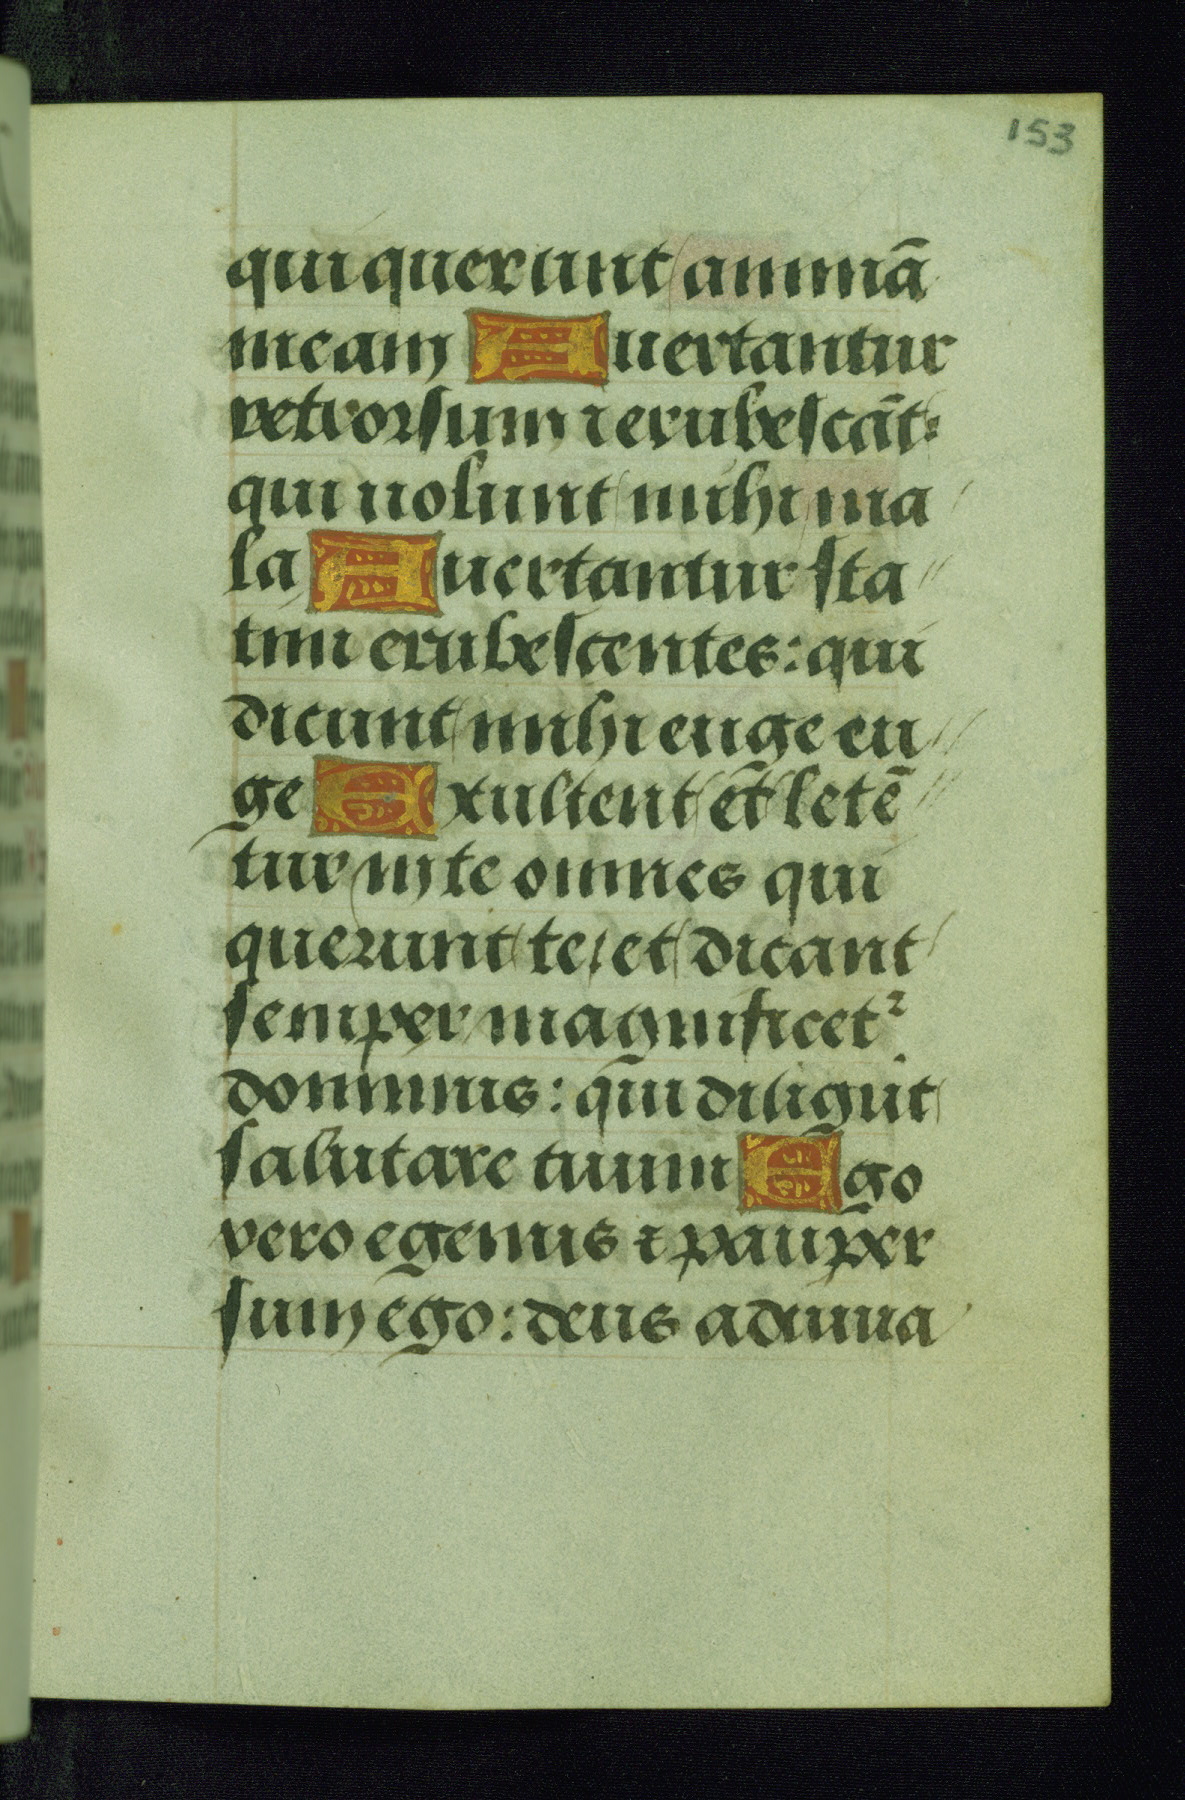 153
qui querunt animā
meam Auertantur
retrorsum ⁊ erubescāt:
qui uolunt mihi ma
la Auertantur sta
tim erubescentes: qui
dicunt mihi euge eu
ge Exultent et letē
tur in te omnes qui
querunt te: et dicant
semper magnificet²
dominus: qui diligūt
salutare tuum Ego
vero egenus ⁊ pauper
sum ego: deus adiuua